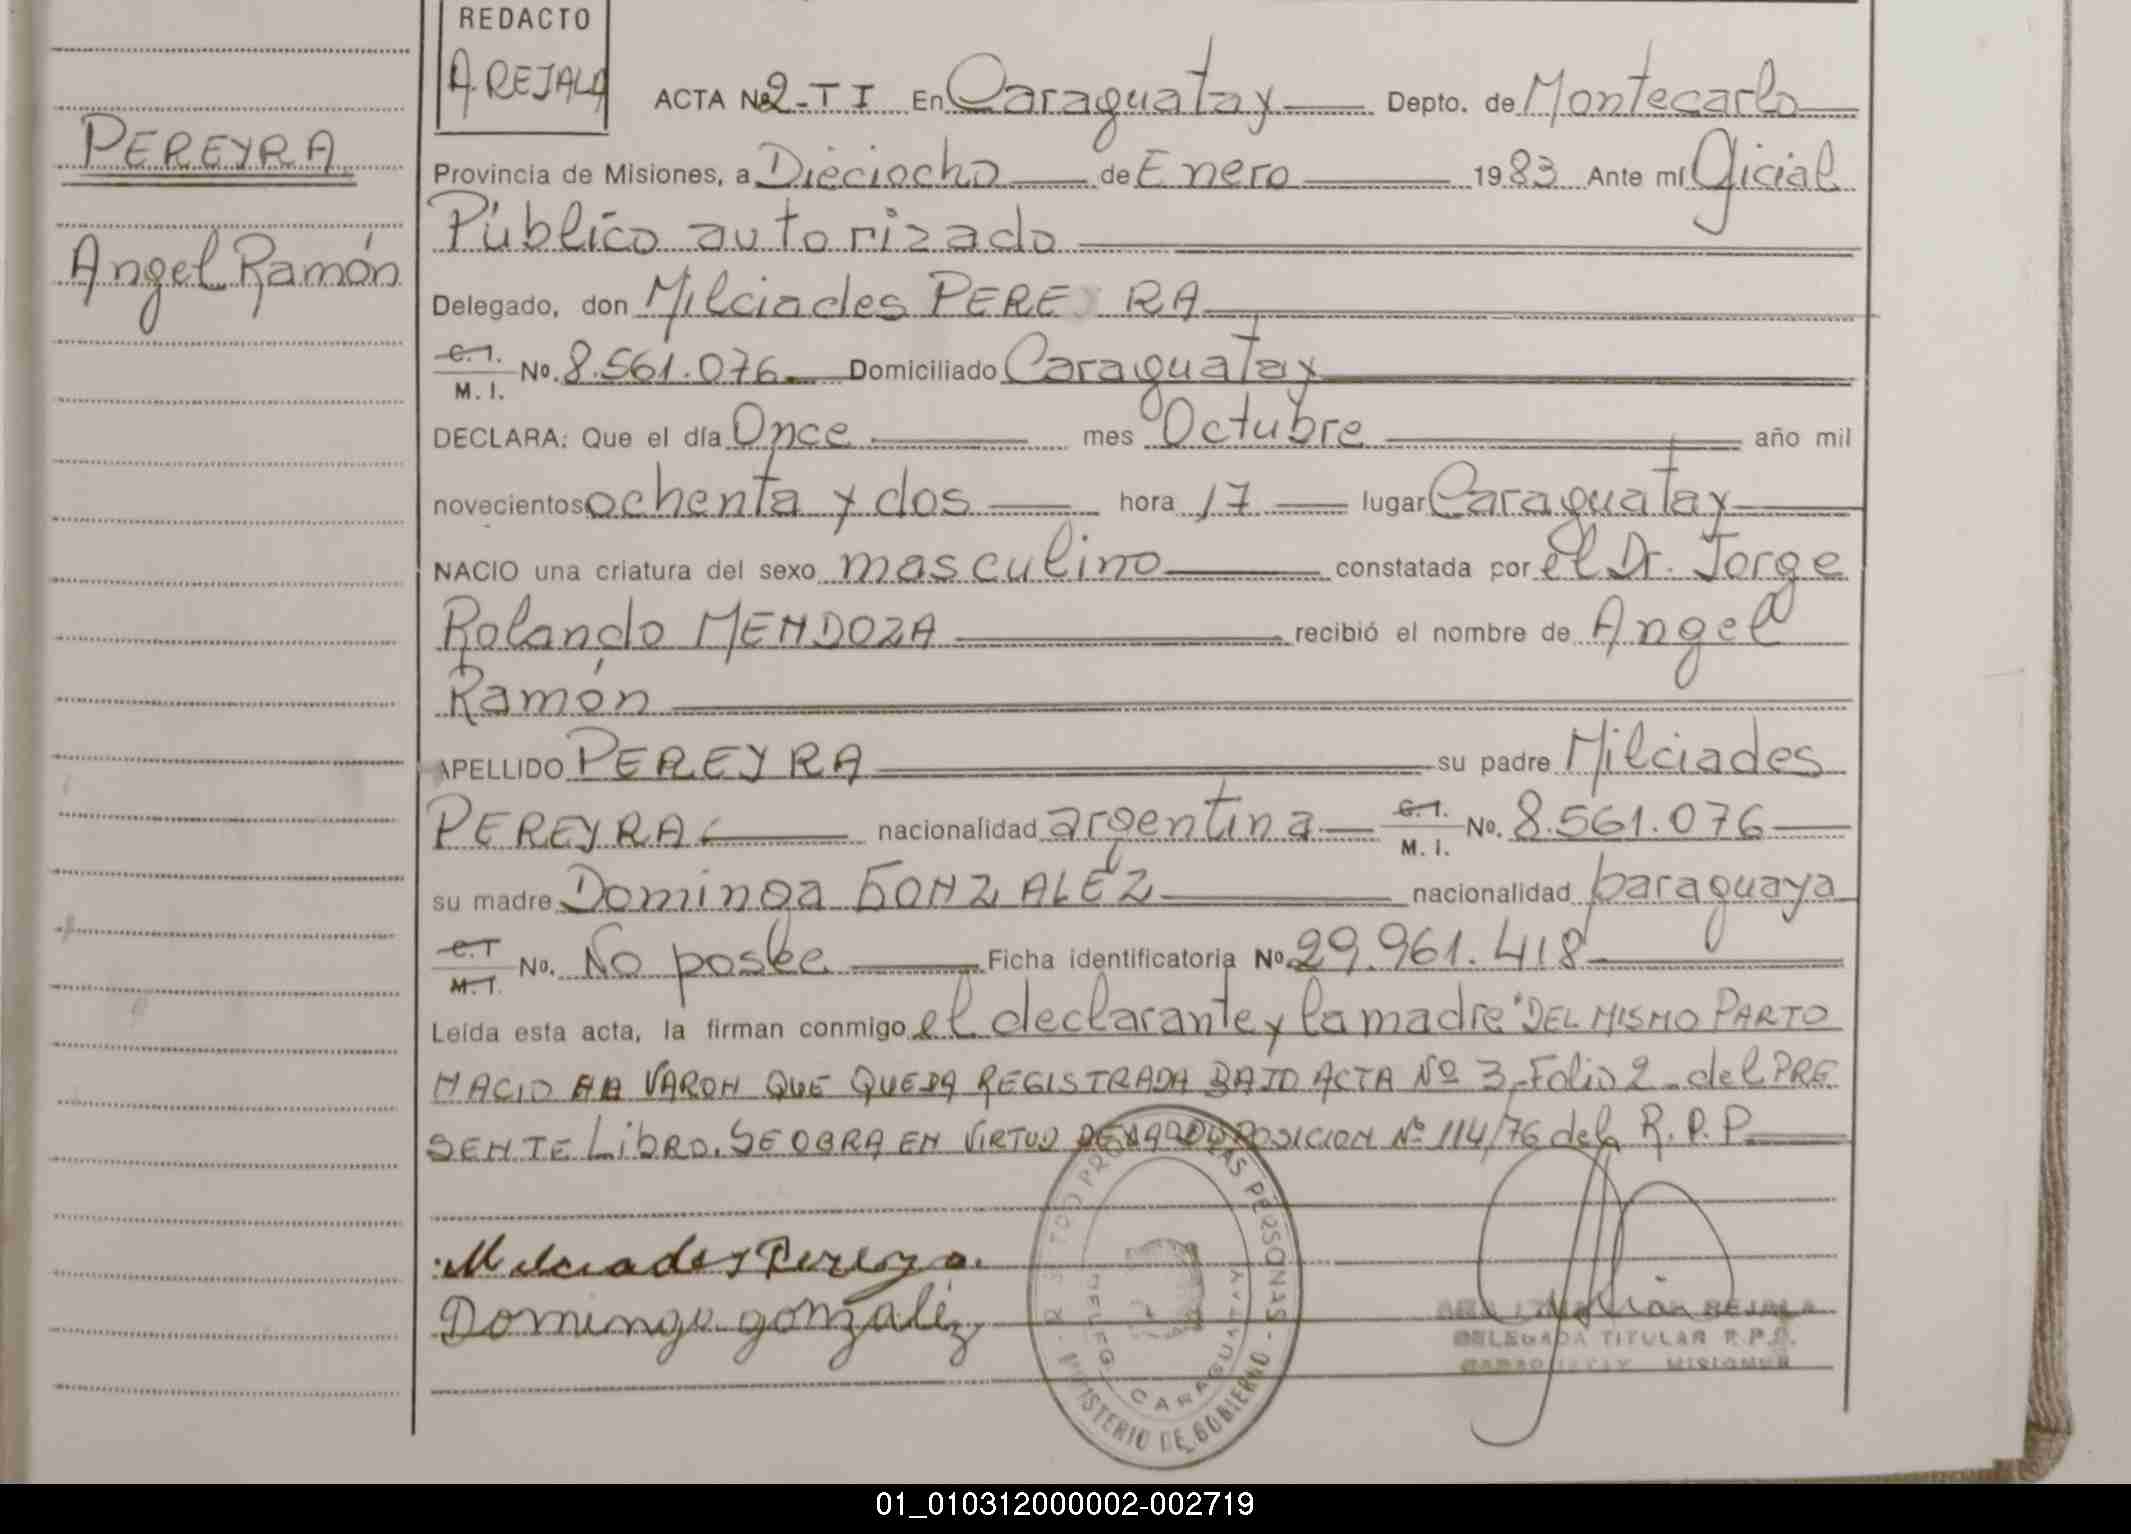 REDACTO
A. REJALA
ACTA Nº 2-T I En Caraguatay Depto. de Montecarlo
PEREYRA
Provincia de Misiones, a Dieciocho de Enero 1983 Ante mí Oficial
Público autorizado
Angel Ramón
Delegado, don Milciades PEREYRA
C.I. M.I. No. 8.561.076 Domiciliado Caraguatay
DECLARA: Que el día Once mes Octubre año mil
novecientos ochenta y dos hora 17 lugar Caraguatay
NACIO una criatura del sexo masculino constatada por el Dr. Jorge
Rolando MENDOZA recibió el nombre de Angel
Ramón
APELLIDO PEREYRA su padre Milciades
PEREYRA nacionalidad argentina C.I. M.I. No. 8.561.076
su madre Dominga GONZALEZ nacionalidad paraguaya
C.I. M.I. No. No posee Ficha identificatoria Nº 29.961.418
Leída esta acta, la firman conmigo el declarante y la madre "DEL MISMO PARTO
NACIO VARON QUE QUEDA REGISTRADA BAJO ACTA Nº 3, Folio 2 del PRE
SENTE LIBRO. SE OBRA EN VIRTUD DE LA DISPOSICION Nº 114/76 del R.P.P.
Milciades Pereyra.
Dominga gonzaléz
LAS PERSONAS - MINISTERIO DE GOBIERNO
DELEG. CARAGUATAY
REJALA
DELEGADA TITULAR R.P.P.
MISIONES
01_010312000002-002719